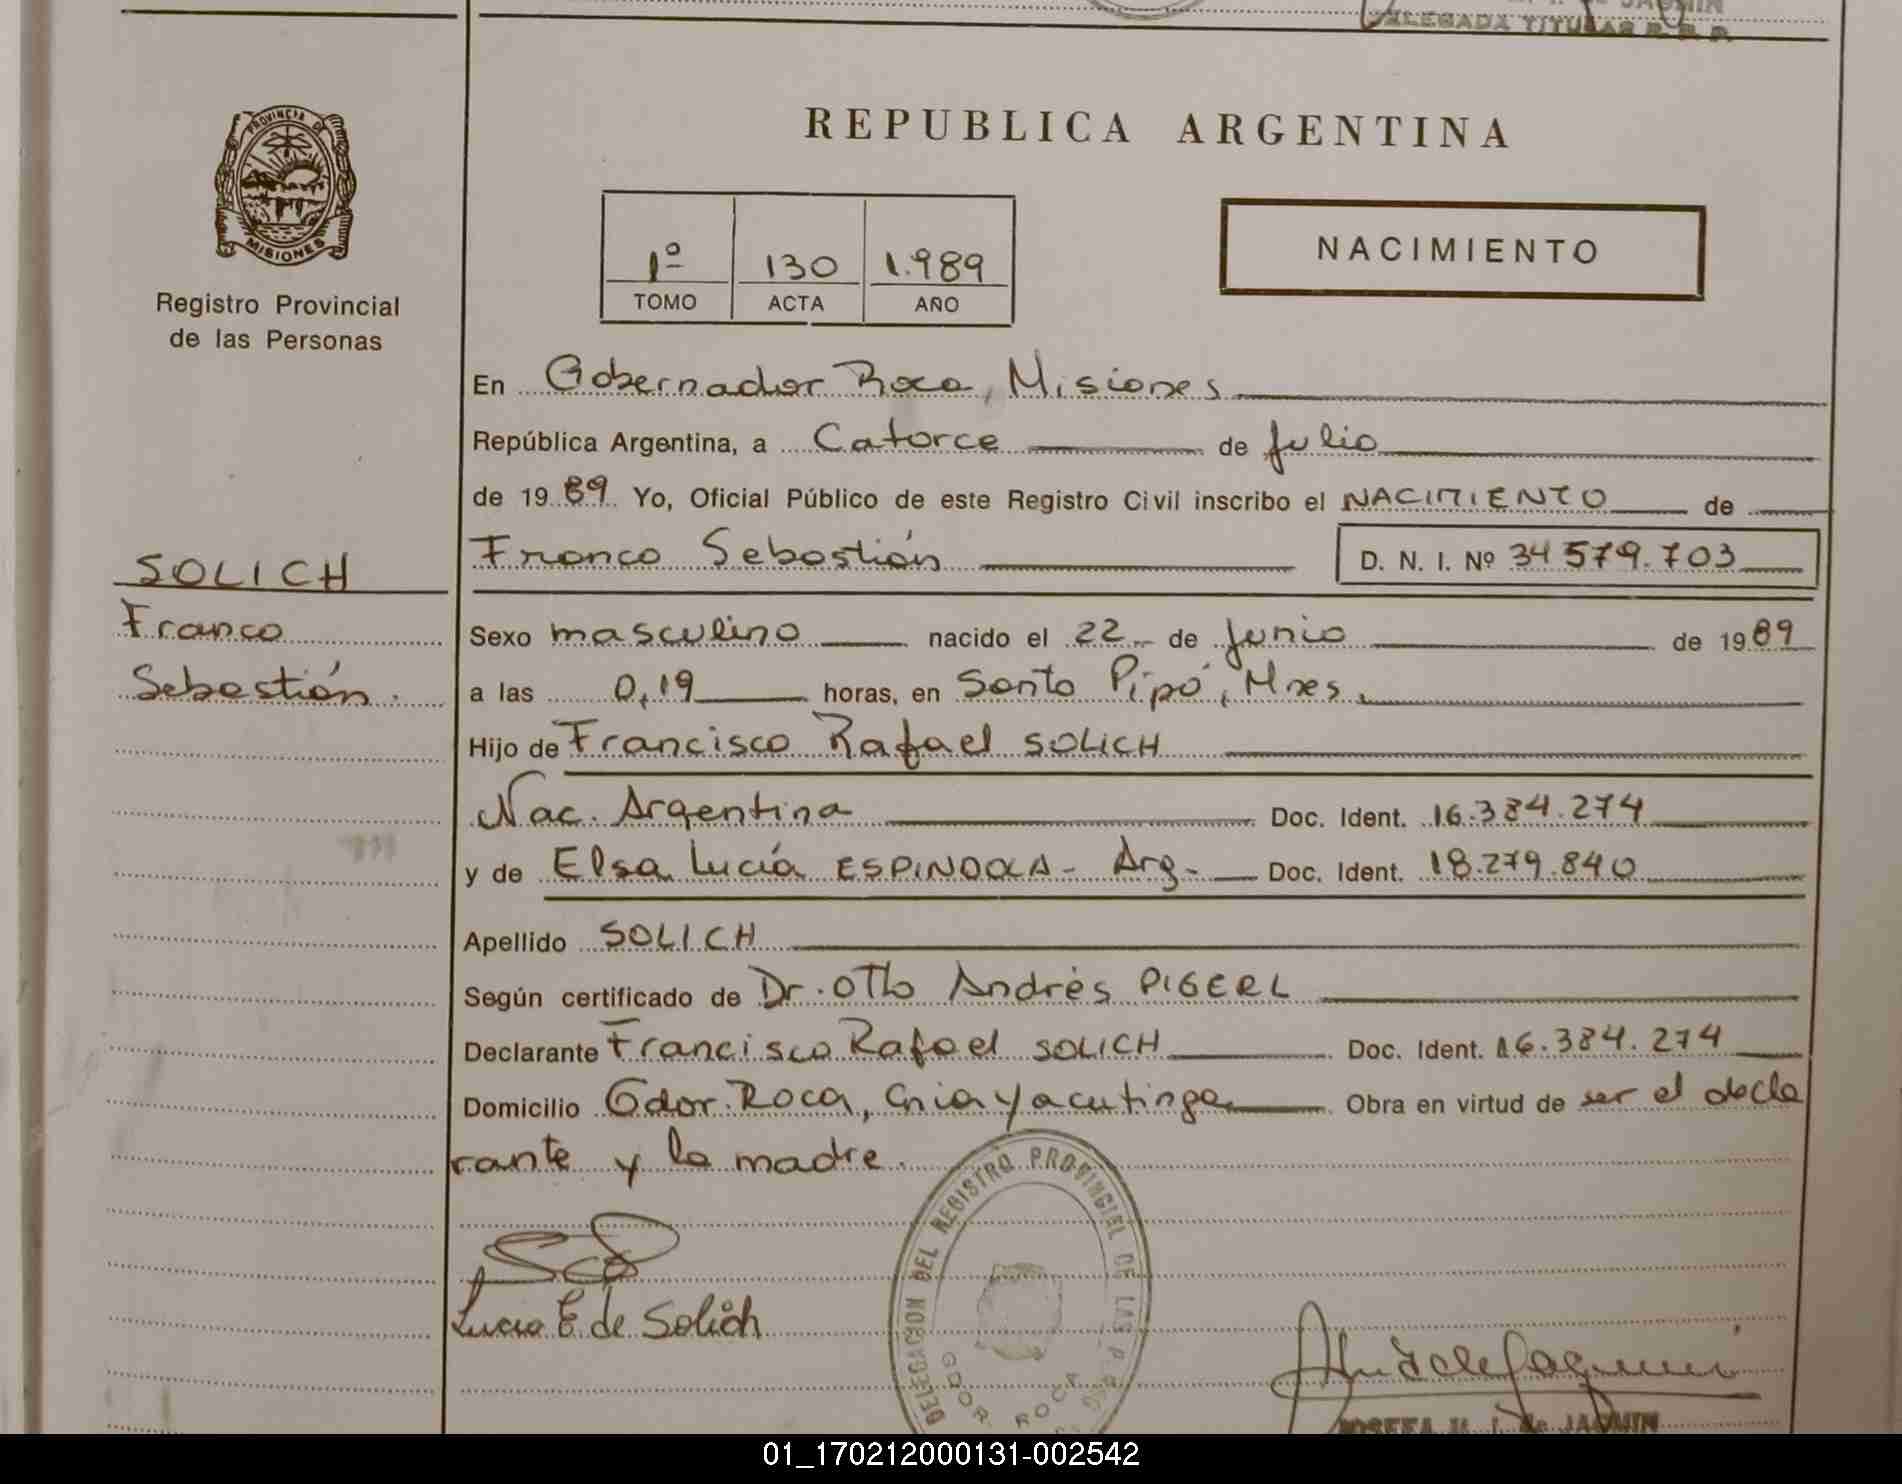 DELEGADA TITULAR R. P. P.
PROVINCIA DE
MISIONES
Registro Provincial
de las Personas
REPUBLICA ARGENTINA
1º 130 1.989
TOMO ACTA AÑO
NACIMIENTO
En Gobernador Roca, Misiones
República Argentina, a Catorce de Julio
de 1989 Yo, Oficial Público de este Registro Civil inscribo el NACIMIENTO de
SOLICH
Franco
Sebastián.
Franco Sebastián D. N. I. Nº 34 579.703
Sexo masculino nacido el 22 de Junio de 1989
a las 0,19 horas, en Santo Pipó, Mnes.
Hijo de Francisco Rafael SOLICH
Nac. Argentina Doc. Ident. 16.384.274
y de Elsa Lucía ESPINDOLA - Arg- Doc. Ident. 18.279.840
Apellido SOLICH
Según certificado de Dr. Otto Andrés PIGERL
Declarante Francisco Rafael SOLICH Doc. Ident. 16.384.274
Domicilio Gdor. Roca, Cnia Yacutinga Obra en virtud de ser el decla
rante y la madre.
DELEGACION DEL REGISTRO PROVINCIEL DE LAS
GDOR. ROCA
Lucia E. de Solich
JOSEFA de JAQMIN
01_170212000131-002542